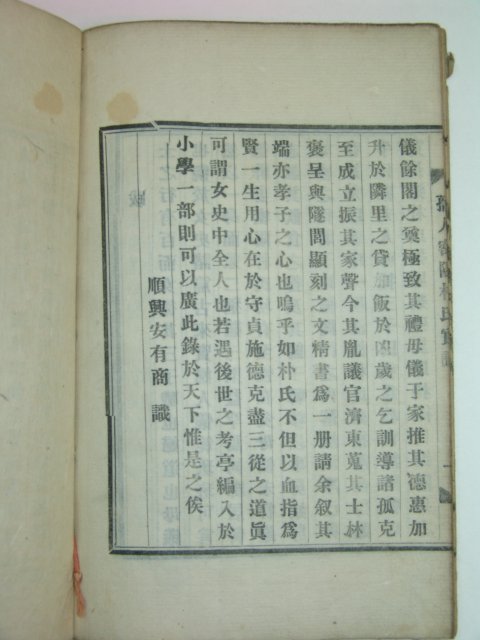 儀餘閣之奠極致其禮母儀于家推其德惠加
升於隣里之貸飯於凶歲之乞訓導諸孤克
至成立振其家聲今其胤議官濟東蒐其士林
褒呈與隧閭顯刻之文精書爲一册請余叙其
端亦孝子之心也嗚乎如朴氏不但以血指爲
賢一生用心在於守貞施德克盡三從之道眞
可謂女史中全人也若遇後世之考亭編入於
小學一部則可以廣此錄於天下惟是之俟
順興安有商識